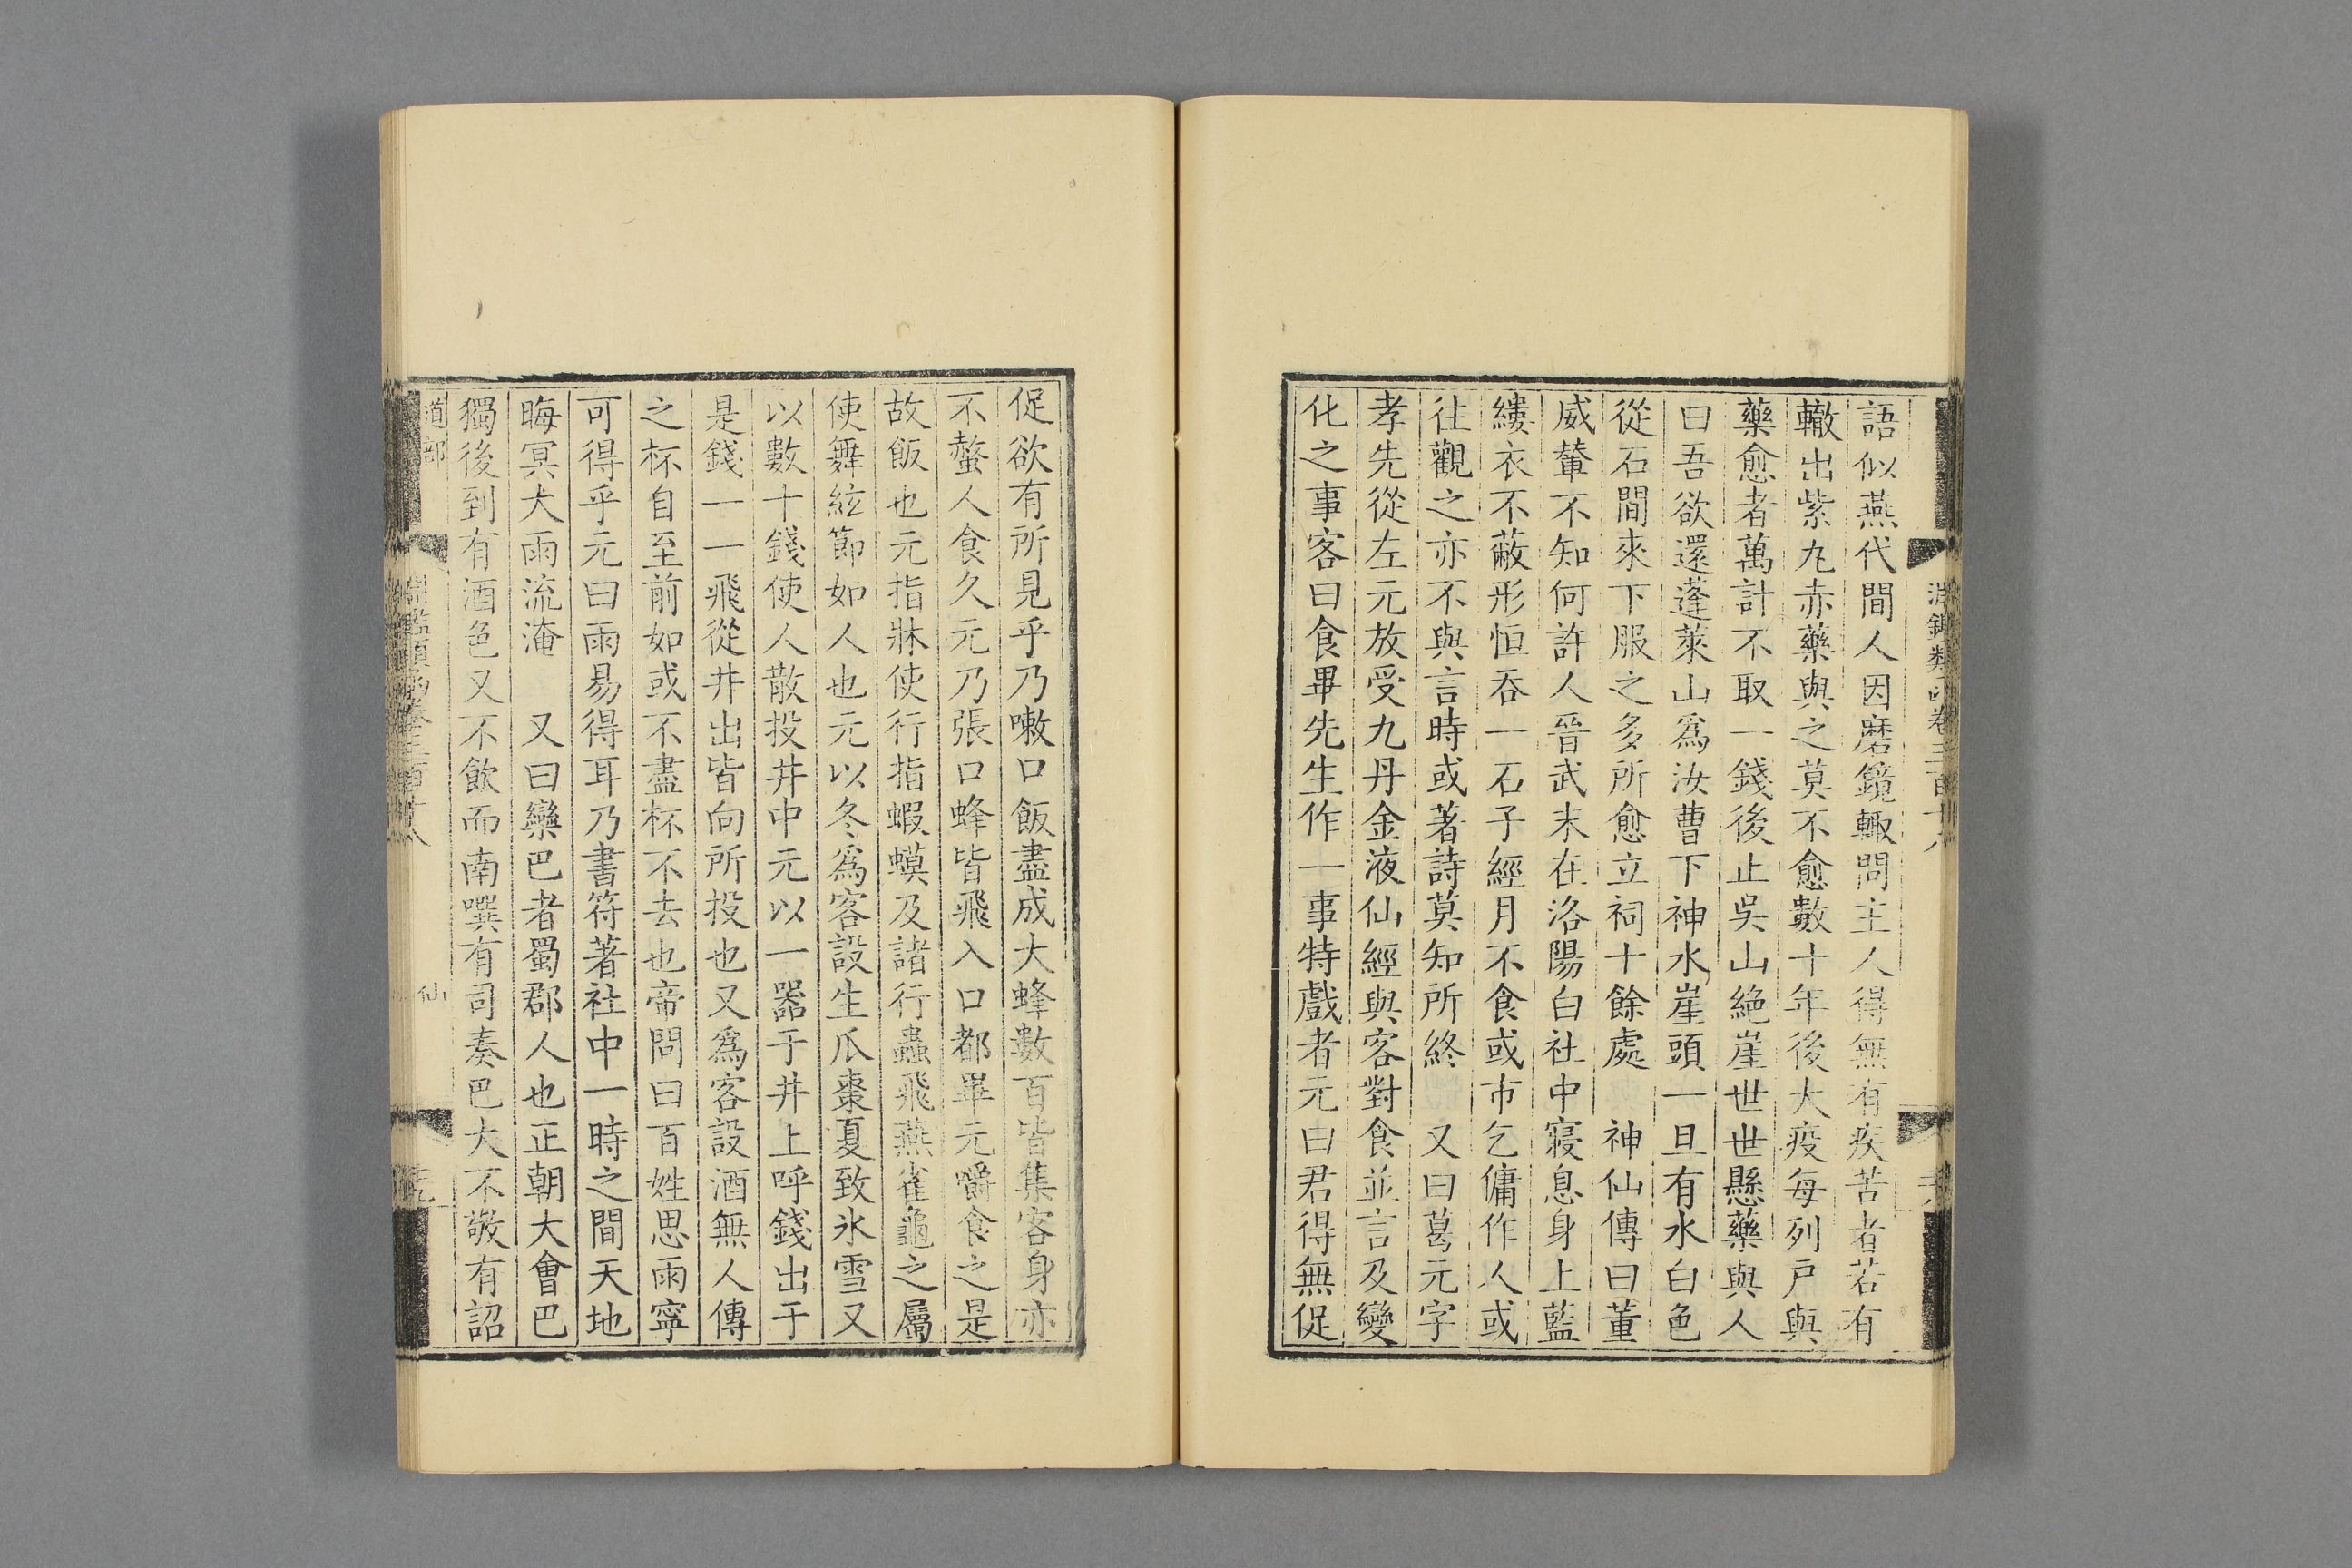 語似燕代間人因磨鏡輙問主人得無有疾苦者若有
轍出紫九赤藥與之莫不愈數十年後大疫每列戸與
藥愈者萬計不取一錢後止吳山絶崖世世懸藥與人
曰吾欲還蓬萊山爲汝曹下神水崖頭一旦有水白色
從石間來下服之多所愈立祠十餘處　神仙傳曰董
威輦不知何許人晉武末在洛陽白社中寢息身上藍
縷衣不蔽形恒吞一石子經月不食或市乞傭作人或
往觀之亦不與言時或著詩莫知所終　又曰葛元字
孝先從左元放受九丹金液仙經與客對食並言及變
化之事客曰食畢先生作一事特戲者元曰君得無促
促欲有所見乎乃嗽口飯盡成大蜂數百皆集客身亦
不螫人食久元乃張口蜂皆飛入口都畢元嚼食之是
故飯也元指牀使行指蝦蟆及諸行蟲飛燕雀龜之屬
使舞絃節如人也元以冬爲客設生瓜棗夏致氷雪又
以數十錢使人散投井中元以一器于井上呼錢出于
是錢一一飛從井出皆向所投也又爲客設酒無人傳
之杯自至前如或不盡杯不去也帝問曰百姓思雨寧
可得乎元曰雨易得耳乃書符著社中一時之間天地
晦冥大雨流淹　又曰欒巴者蜀郡人也正朝大會巴
獨後到有酒色又不飲而南噀有司奏巴大不敬有詔
道部
仙